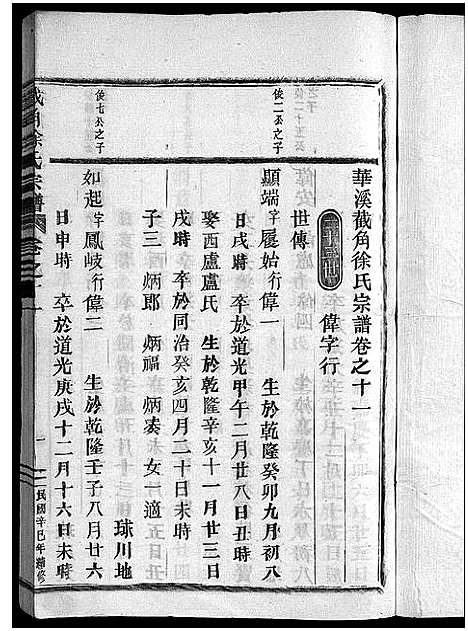 華溪截角徐氏宗譜卷之十一
世傳
偉字行
俟二公之子
顯端字履始行偉一　生於乾隆癸卯九月初八
日戌時　卒於道光甲午二月廿八日丑時
娶西盧盧氏　生於乾隆辛亥十一月廿三日
戌時　卒於同治癸亥四月二十日未時
子三　炳郎　炳福　炳奏　女一適　球川地
俟七公之子
如起字鳳岐行偉二　生於乾隆壬子八月廿六
日申時　卒於道光庚戌十二月十六日未時
截角徐氏宗譜　卷之十一
一　民國辛巳年續修